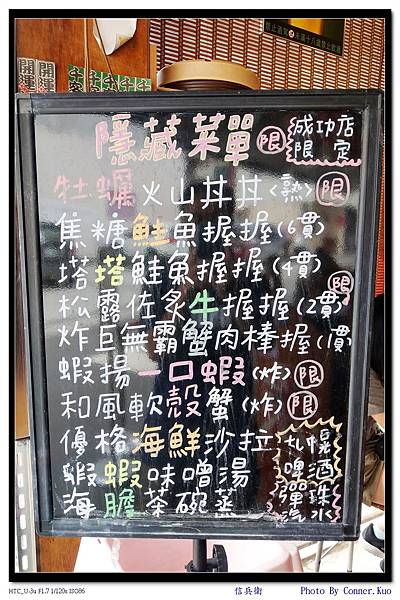 禁止酒駕 未滿十八歲禁止飲酒
開運
開運
隱藏菜單 限
成功店
限定
牡蠣火山丼丼<熟> 限
焦糖鮭魚握握(6貫)
塔塔鮭魚握握(4貫)
松露佐炙牛握握(2貫) 限
炸巨無霸蟹肉棒握(1貫)
蝦揚一口蝦(炸) 限
和風軟殼蟹(炸) 限
優格海鮮沙拉
蝦蝦味噌湯
海膽茶碗蒸
啤酒
彈珠
汽水
HTC_U-3u F1.7 1/120s ISO86
信兵衛
Photo By Conner.Kuo